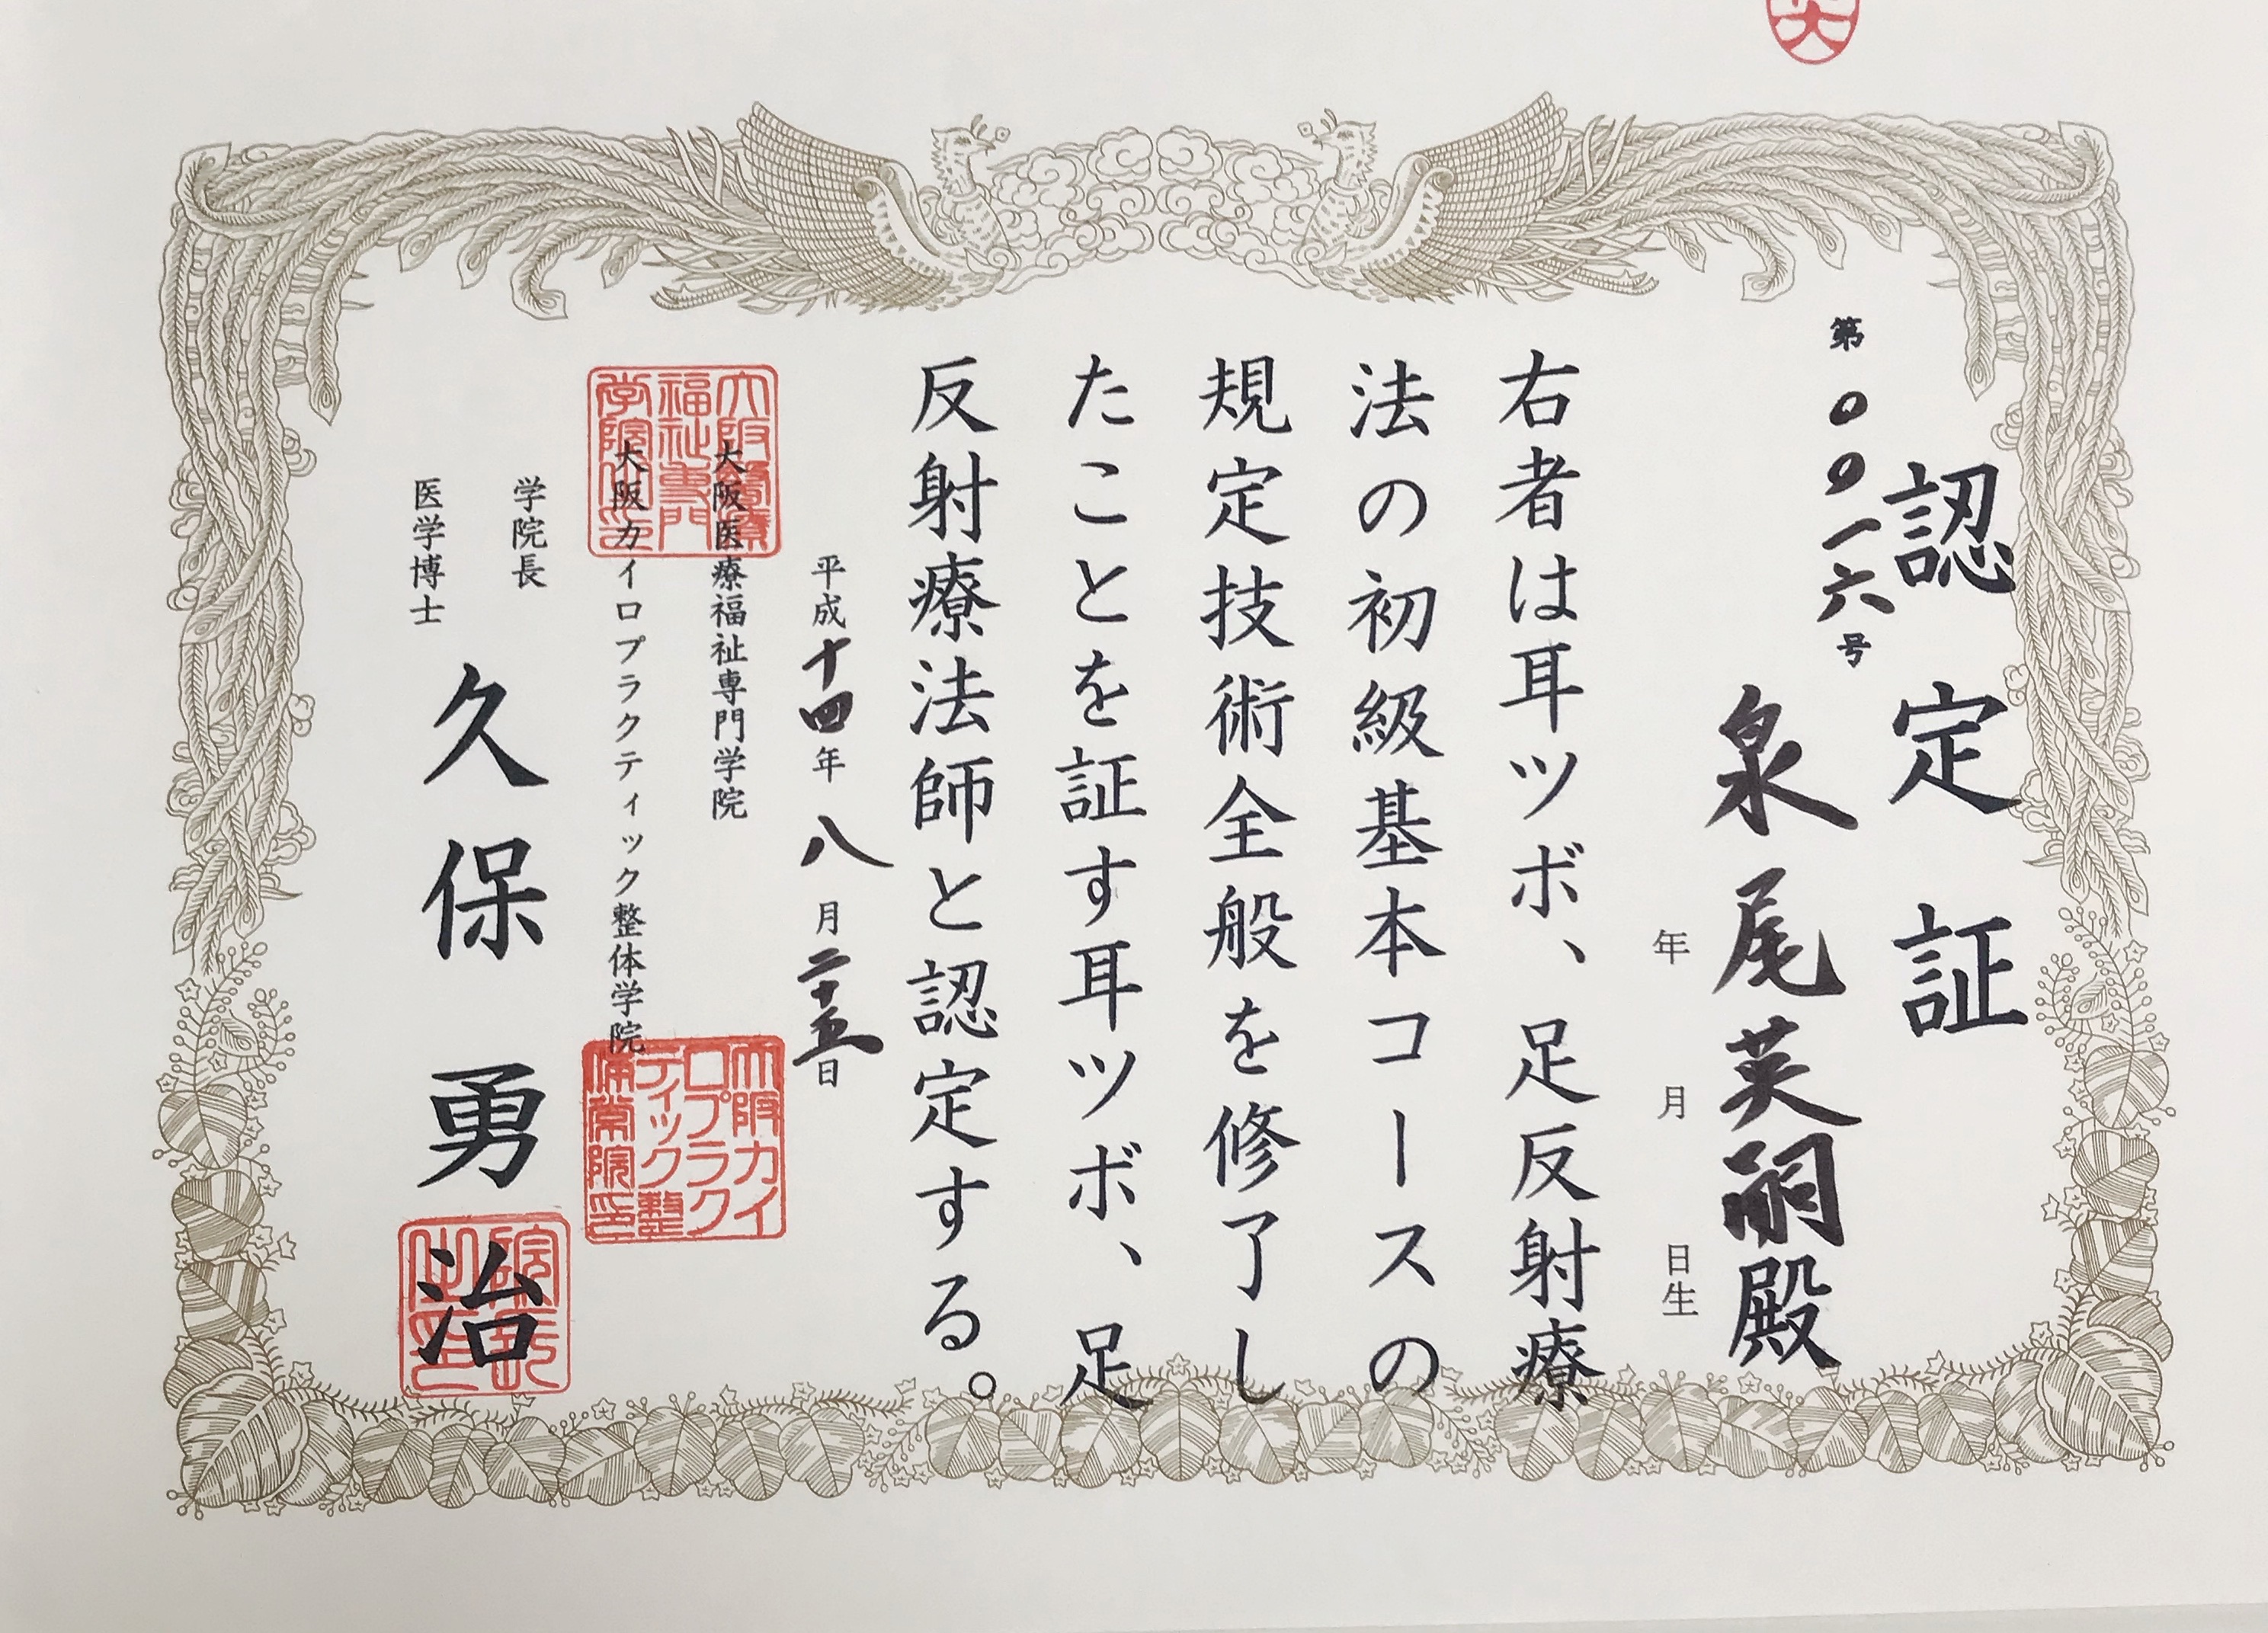 認定証
第〇〇一六号
泉尾英嗣殿
年 月 日生
右者は耳ツボ、足反射療
法の初級基本コースの
規定技術全般を修了し
たことを証す耳ツボ、足
反射療法師と認定する。
平成十四年八月二十五日
大阪医療福祉専門学院
大阪カイロプラクティック整体学院
学院長
医学博士
久保勇治
大阪医療
福祉専門
学院
大阪カイ
ロプラク
ティック整
院長